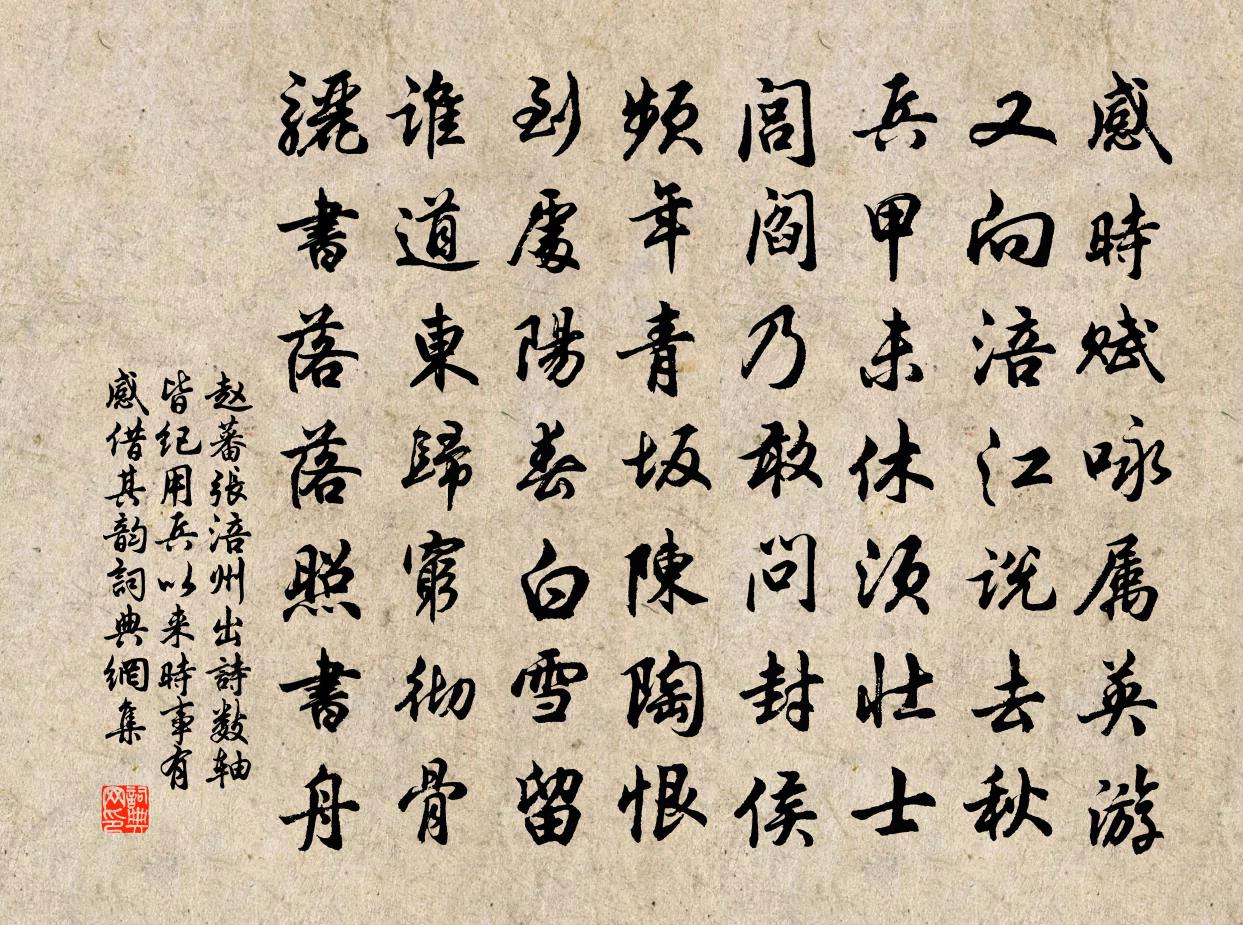 感時賦咏屬英游
又向涪江説去秋
兵甲未休須壮士
閭閻乃敢問封侯
頻年青坂陳陶恨
到處陽春白雪留
誰道東歸窮彻骨
驪書落落照書舟
赵蕃張涪州出詩数轴
皆纪用兵以来時事有
感借其韵詞典網集
詞典网印